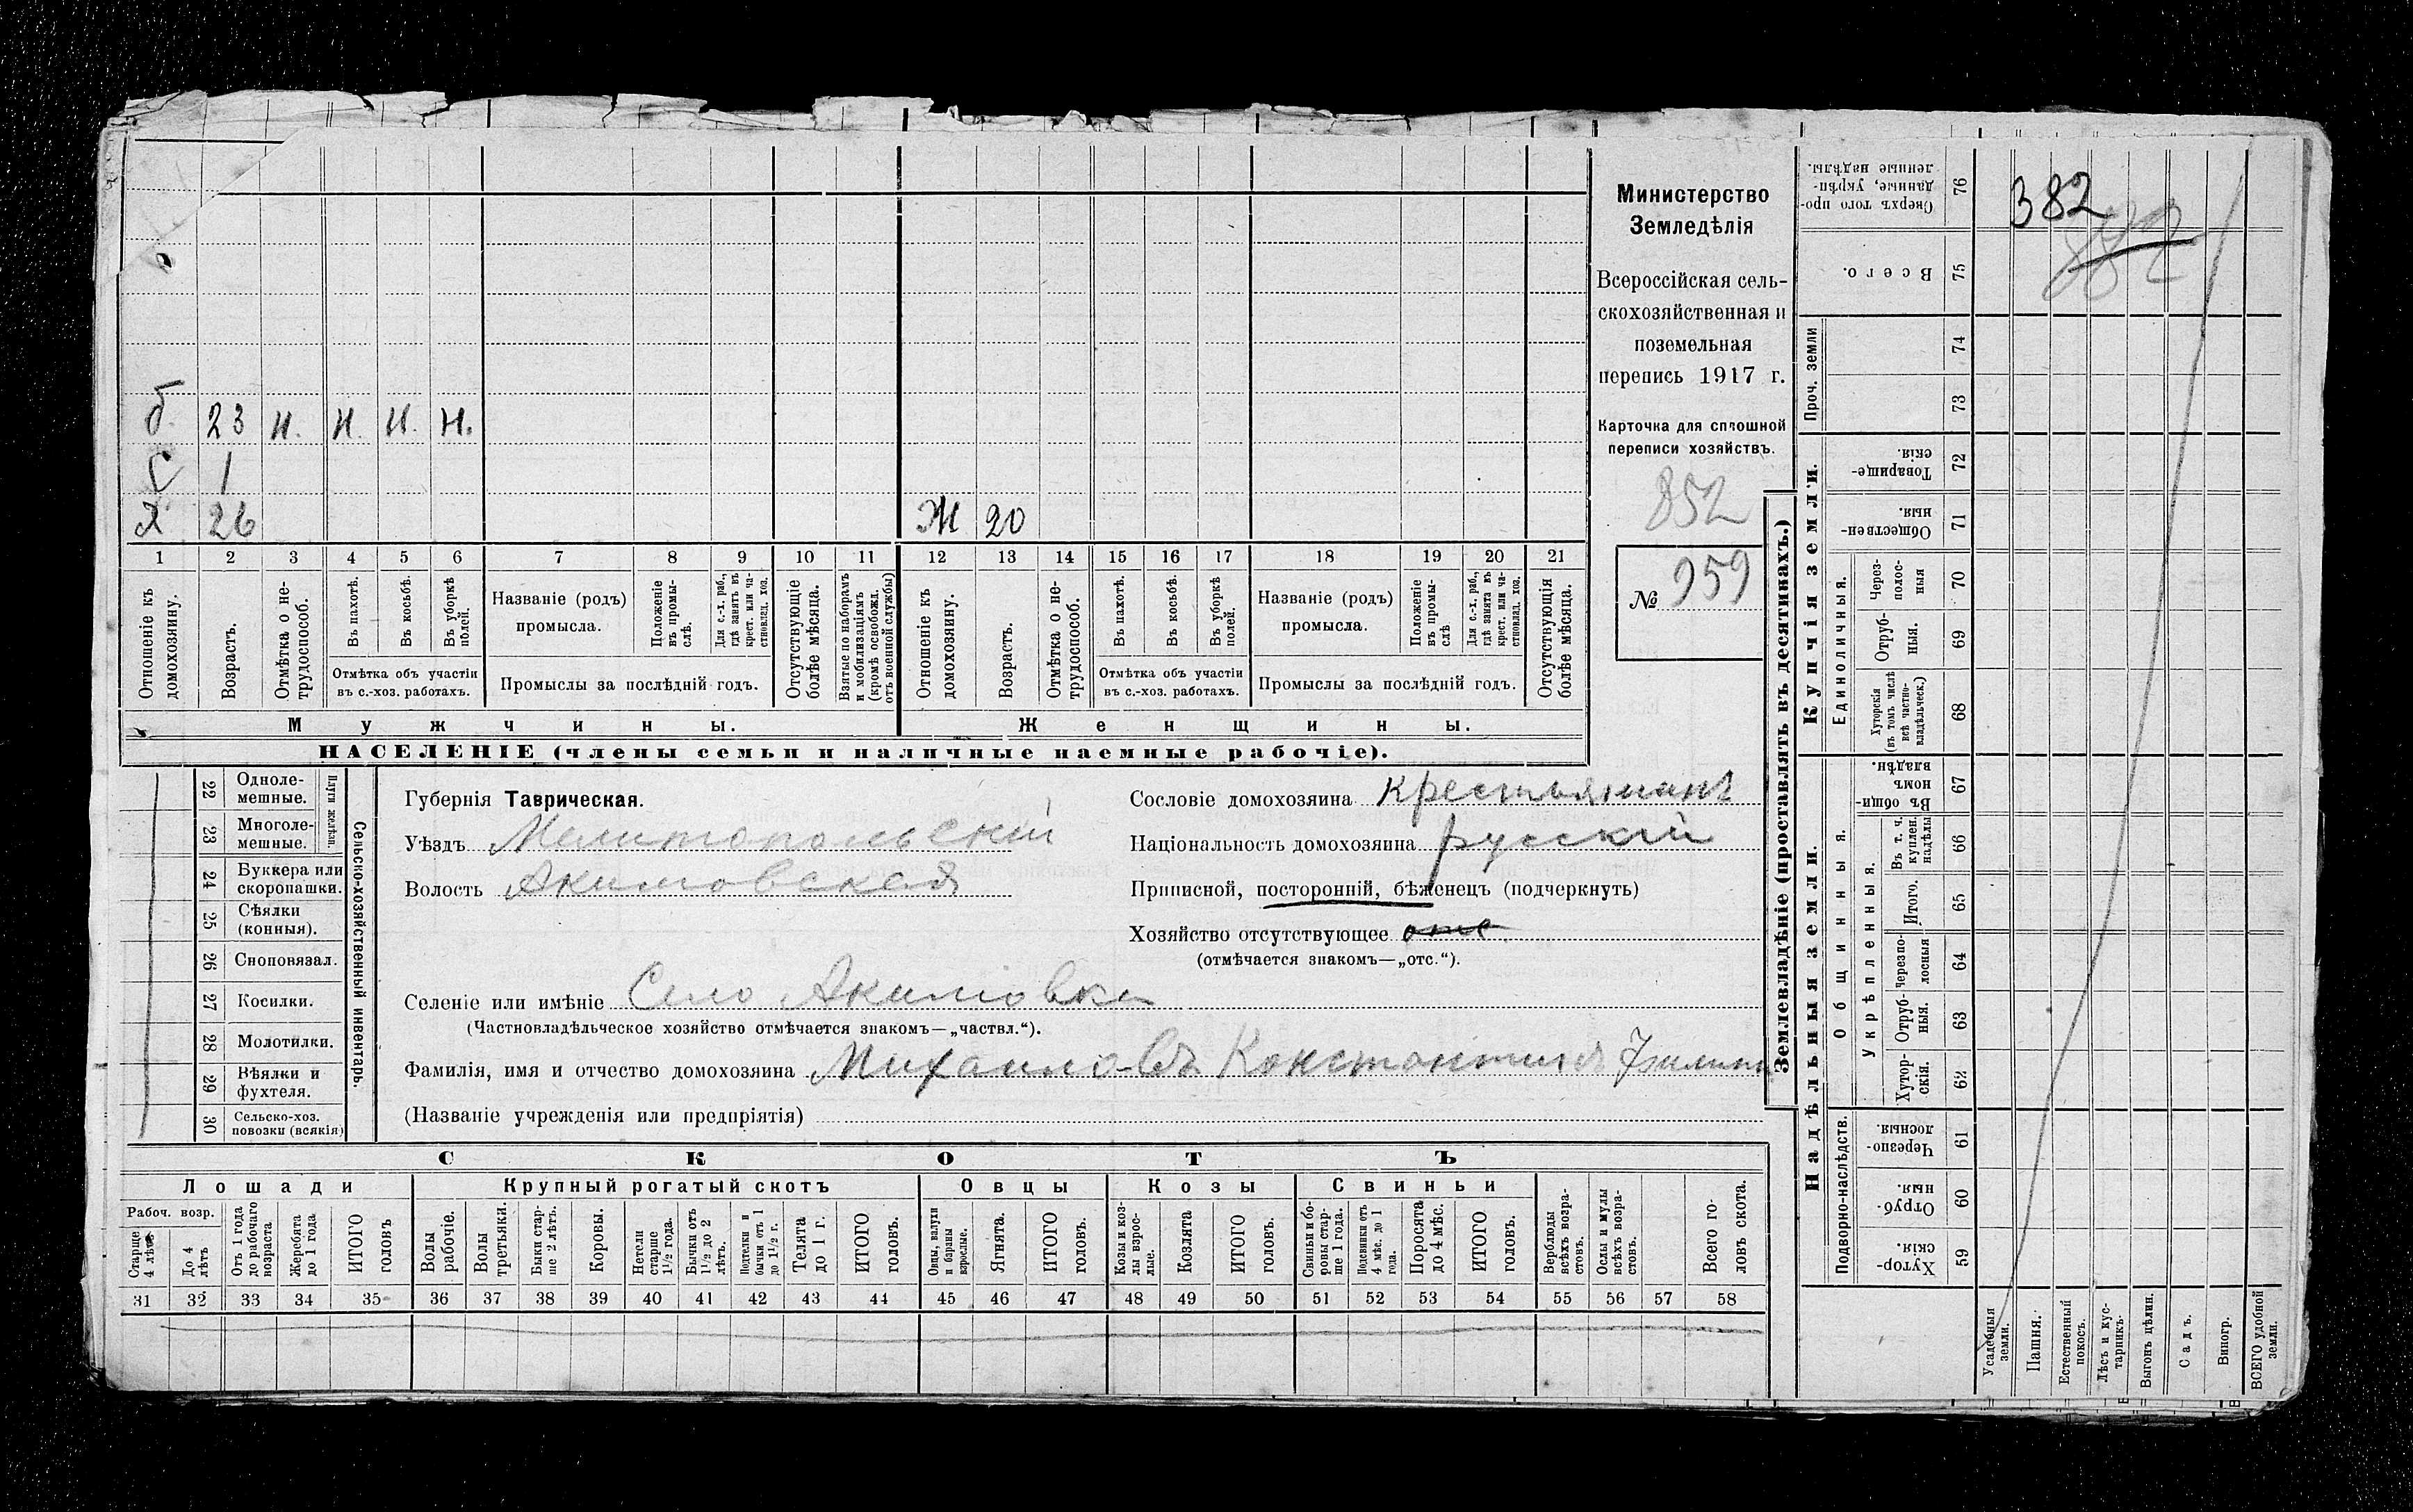 б. 23 н. н. н. н.
с 1
Я 26 Ж 20
1 2 3 4 5 6 7 8 9 10 11 12 13 14 15 16 17 18 19 20 21
Отношеніе къ домохозяину.
Возрастъ.
Отмѣтка о нетрудоспособ.
Въ пахотѣ.
Въ косьбѣ.
Въ уборкѣ полей.
Отмѣтка объ участіи въ с.-хоз. работахъ.
Названіе (родъ) промысла.
Положеніе въ промыслѣ.
Для с.-х. раб., гдѣ занятъ въ крест. или частновлад. хоз.
Промыслы за послѣдній годъ.
Отсутствующіе болѣе мѣсяца.
Взятые по наборамъ и мобилизаціямъ (кромѣ освобожд. отъ военной службы)
Отношеніе къ домохозяину.
Возрастъ.
Отмѣтка о нетрудоспособ.
Въ пахотѣ.
Въ косьбѣ.
Въ уборкѣ полей.
Отмѣтка объ участіи въ с.-хоз. работахъ.
Названіе (родъ) промысла.
Положеніе въ промыслѣ
Для с.-х. раб., гдѣ занята въ крест. или частновлад. хоз.
Промыслы за послѣдній годъ.
Отсутствующія болѣе мѣсяца.
Мужчины. Женщины.
НАСЕЛЕНІЕ (члены семьи и наличные наемные рабочіе).
Министерство
Земледѣлія
Всероссійская сель-
скохозяйственная и
поземельная
перепись 1917 г.
Карточка для сплошной
переписи хозяйствъ.
852
№ 959
22 Одноле-
мешные.
23 Многоле-
мешные.
Плуги желѣзн.
24 Буккера или
скоропашки.
25 Сѣялки
(конныя).
26 Сноповязал.
27 Косилки.
28 Молотилки.
29 Вѣялки и
фухтеля.
30 Сельско-хоз.
повозки (всякія)
Сельско-хозяйственный инвентарь.
Губернія Таврическая.
Уѣздъ Мелитопольскій
Волость Акимовская
Сословіе домохозяина крестьянинъ
Національность домохозяина русскій
Приписной, посторонній, бѣженецъ (подчеркнуть)
Хозяйство отсутствующее отс
(отмѣчается знакомъ—„отс.“).
Селеніе или имѣніе Село Акимовка
(Частновладѣльческое хозяйство отмѣчается знакомъ—„частвл.“).
Фамилія, имя и отчество домохозяина Михаиловъ Константинъ
(Названіе учрежденія или предпріятія)
СКОТЪ
Лошади Крупный рогатый скотъ Овцы Козы Свиньи
Рабоч. возр.
Старше 4 лѣтъ
До 4 лѣтъ
Отъ 1 года до рабочаго возраста
Жеребята до 1 года.
ИТОГО головъ
Волы рабочіе.
Волы третьяки.
Быки старше 2 лѣтъ.
Коровы.
Нетели старше 1½ года.
Бычки отъ 1½ до 2 лѣтъ.
Подтелки и бычки отъ 1 до 1½ г.
Телята до 1 г.
ИТОГО головъ.
Овцы, валухи и бараны взрослые.
Ягнята.
ИТОГО головъ.
Козы и козлы взрослые.
Козлята
ИТОГО головъ.
Свиньи и боровы старше 1 года.
Подсвинки отъ 4 мѣс. до 1 года.
Поросята до 4 мѣс.
ИТОГО головъ.
Верблюды всѣхъ возрастовъ.
Ослы и мулы всѣхъ возрастовъ.
Всего головъ скота.
31 32 33 34 35 36 37 38 39 40 41 42 43 44 45 46 47 48 49 50 51 52 53 54 55 56 57 58
Землевладѣніе (проставлять въ десятинахъ.)
382
882
Сверхъ того проданные, укрѣпленные надѣлы. 76
Всего. 75
Проч. земли 74
73
Купчія земли.
Товарищескія. 72
Общественныя. 71
Единоличныя.
Черезполосныя 70
Отрубныя. 69
Хуторскія (въ томъ числѣ всѣ частновладѣльческ.) 68
Надѣльныя земли.
Общинныя.
Въ общинномъ владѣн. 67
Укрѣпленныя.
Въ т. ч. куплен. надѣлы 66
Итого. 65
Черезполосныя 64
Отрубныя. 63
Хуторскія. 62
Подворно-наслѣдств.
Черезполосныя. 61
Отрубныя. 60
Хуторскія. 59
Усадебныя земли.
Пашня.
Естественный покосъ.
Лѣсъ и кустарникъ.
Выгонъ цѣлин.
Садъ.
Виногр.
ВСЕГО удобной земли.